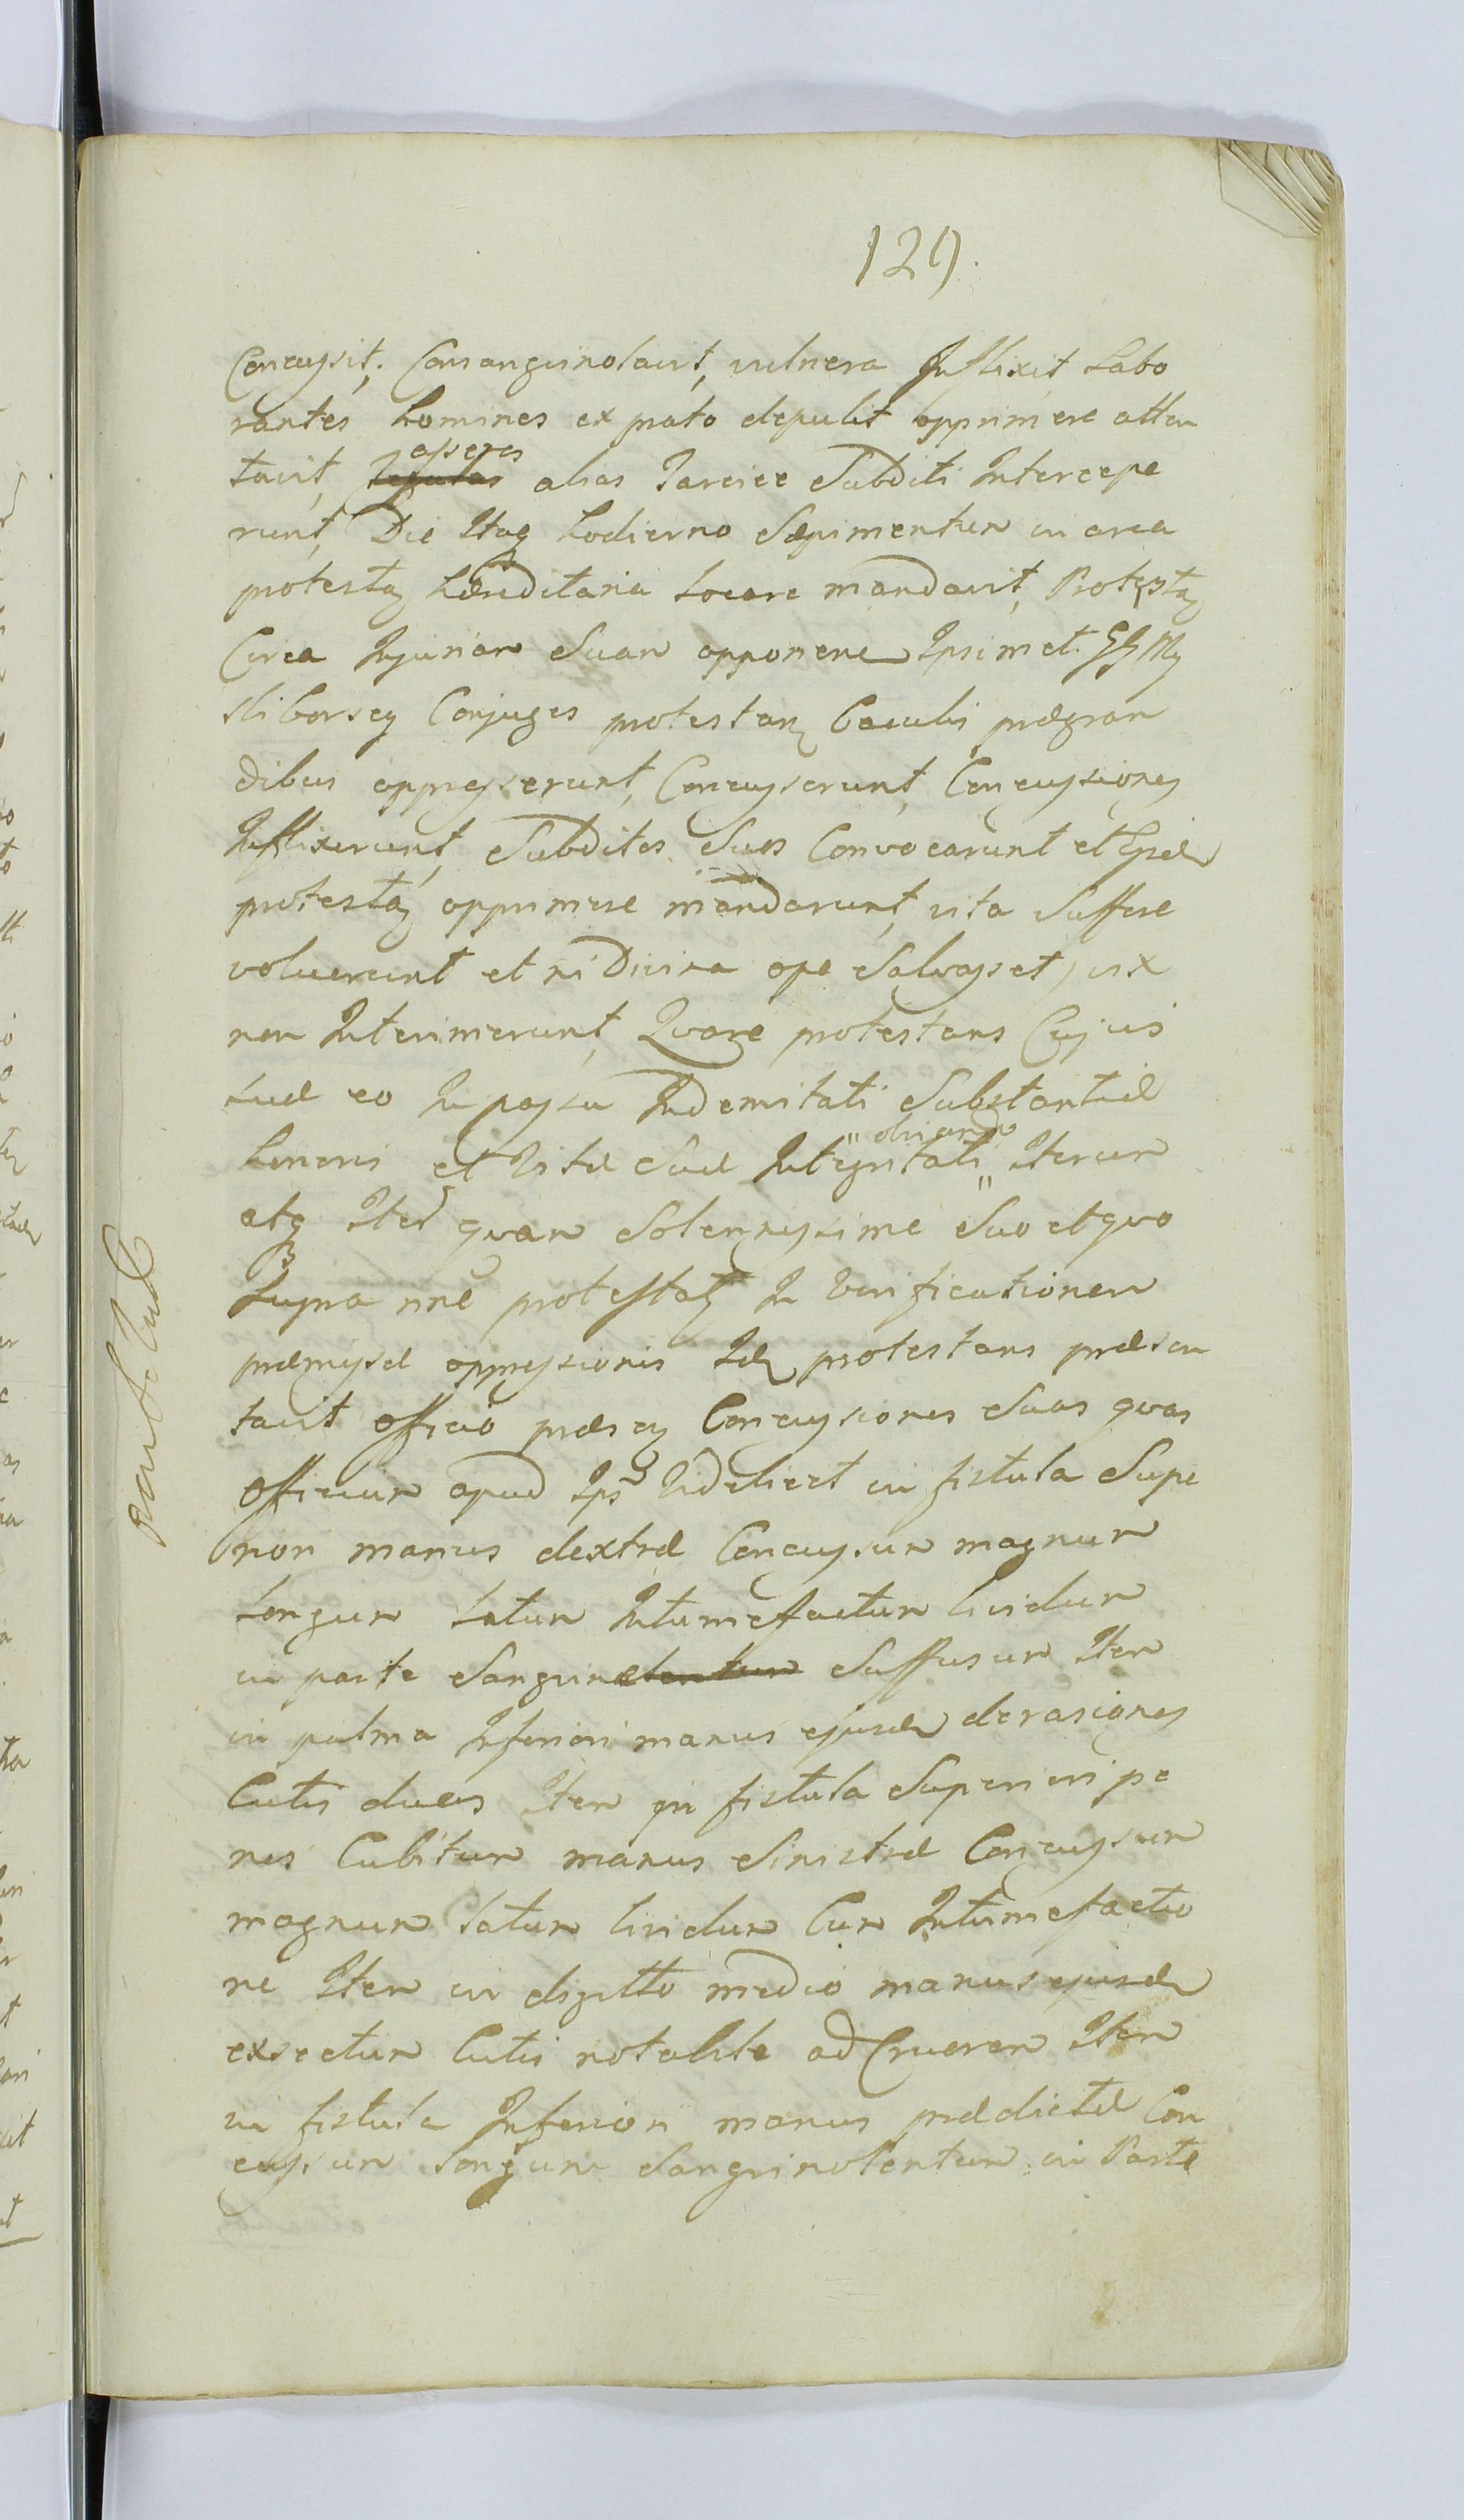 129.
Concussit, Consanguinolavit, vulnera Inflixit Labo
rantes homines ex prato depulit opprimere atten
tavit, asseres alias Tarcice Subditi Intercepe
runt, Die Itaq hodierno Sepimentum in area
protestan hæreditaria Locare mandavit, Protestan
Circa Injuriam Suam opponenem Ipsimet GG
Conjuges protestanem baculis prægran
dibus oppresserunt, Concusserunt, Concussiones
Inflixerunt, Subditos Suos Convocarunt et Ipsum
protestan opprimere mandarunt, vita
voluerunt et ni Divina ope Salvasset, vix
non Interimerunt, Qvare protestans Cujus
suæ eo In passu Indemitati Substantiæ
honoris et Vitæ Suæ Integritati Iterum
atq Iter qvam Solennissime Suo et qvo
Supra nne protestatur In Verificationem
præmissæ oppressionis Idem protestans præsen
tavit officio præsen Concussiones Suas qvas
officium apud Ips Videlicet in fistula Supe
riori manus dextræ Concussum magnum
Longum Latum Intumefactum lividum
in parte Sanguine Suffusum Item
in palma Inferiori manus ejusdem derasiones
Cutis duas Item in fistula Superiori pe
nes Cubitum manus Sinistræ Concussum
magnum Latum lividum Cum Intumefactio
ne Item in digitto medio manus ejusdem
exsectum Cutis notabile ad Cruorem Item
in fistula Inferiori manus prædictæ Con
cussum Longum Sanguinolentum in Parte